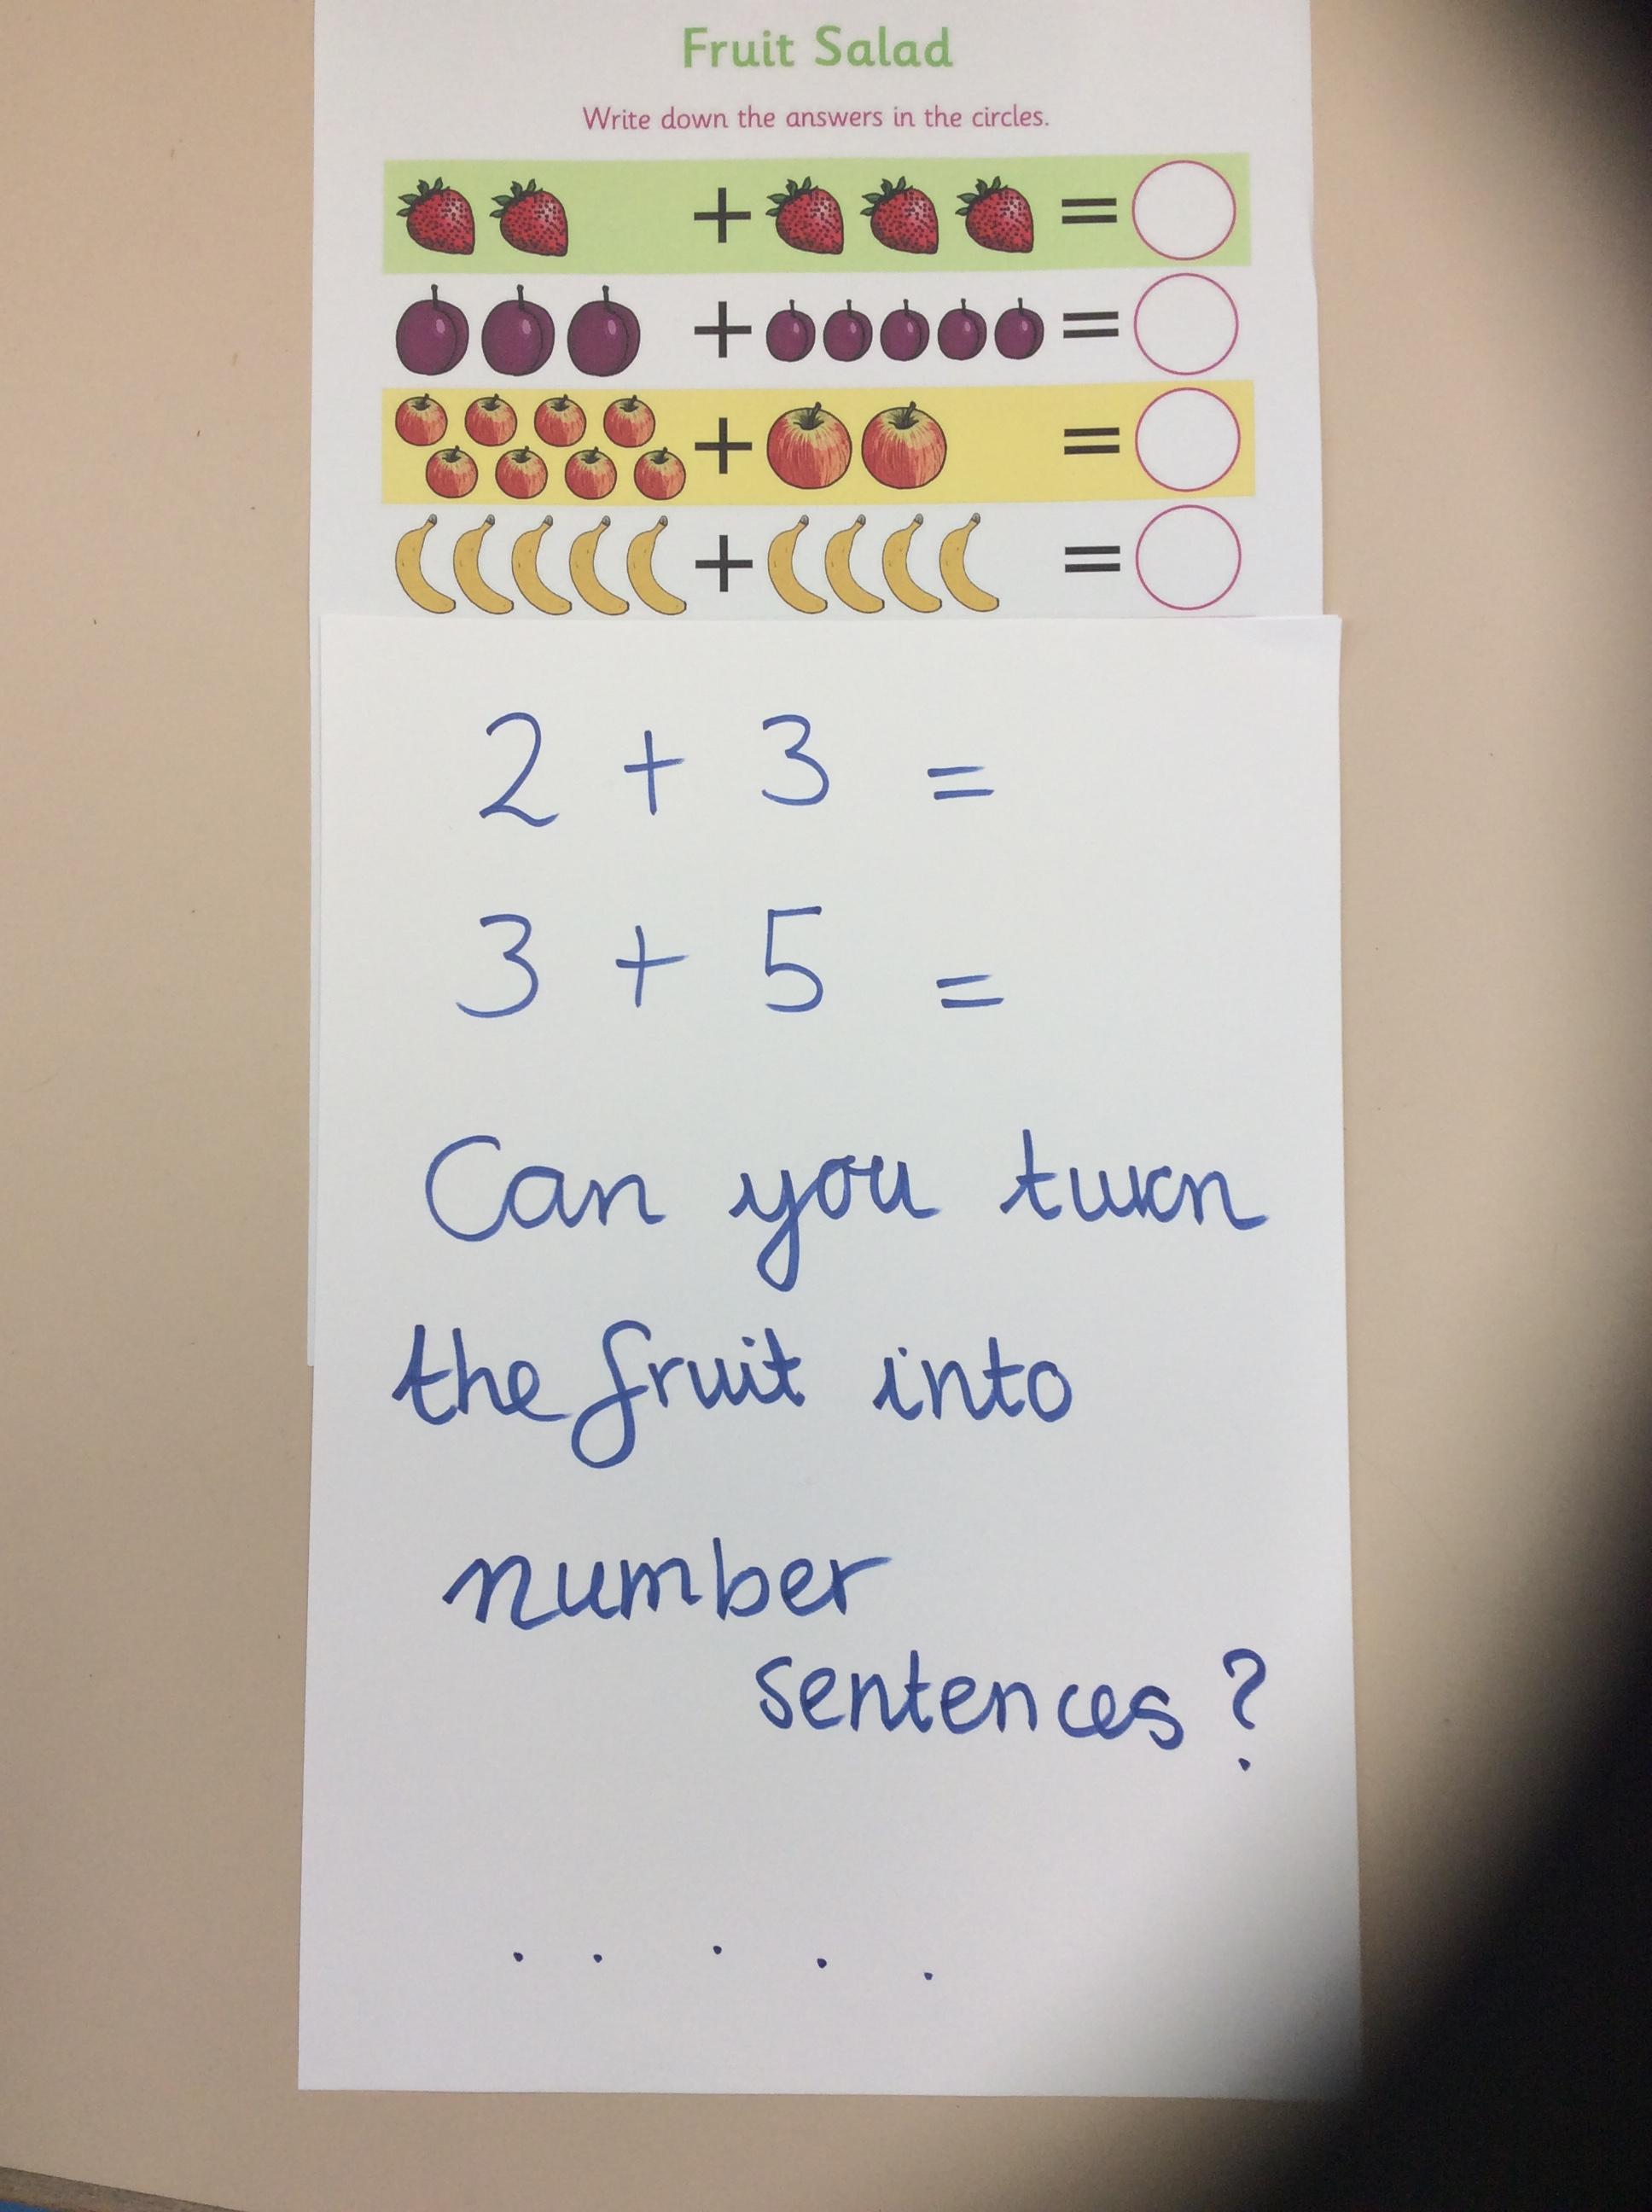 Fruit Salad
Write down the answers in the circles.
+ =
+ =
+ =
+ =
2 + 3 =
3 + 5 =
Can you turn
the fruit into
number
sentences?
. . . . .